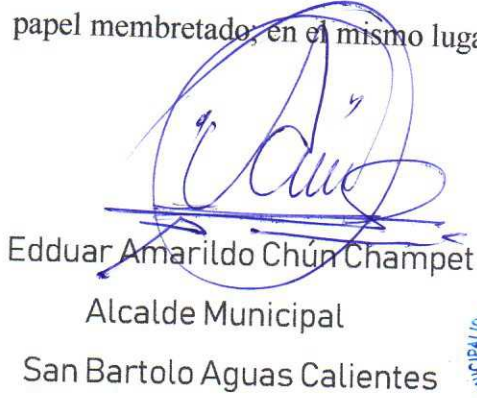 papel membretado; en el mismo luga
Edduar Amarildo Chún Champet
Alcalde Municipal
San Bartolo Aguas Calientes